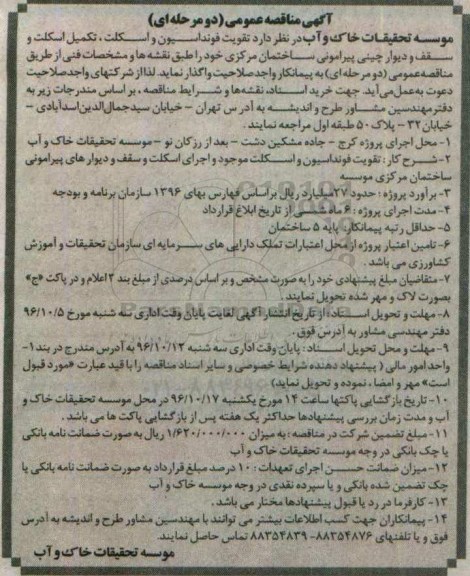 آگهی مناقصه عمومی (دو مرحله ای)
موسسه تحقیقات خاک و آب در نظر دارد تقویت فونداسیون و اسکلت ، تکمیل اسکلت و
سقف و دیوار چینی پیرامونی ساختمان مرکزی خود را طبق نقشه ها و مشخصات فنی از طریق
مناقصه عمومی (دو مرحله ای) به پیمانکار واجد صلاحیت واگذار نماید. لذا از شرکتهای واجد صلاحیت
دعوت به عمل می آید. جهت خرید اسناد، نقشه ها و شرایط مناقصه ، بر اساس مندرجات زیر به
دفتر مهندسین مشاور طرح و اندیشه به آدرس تهران - خیابان سیدجمال الدین اسدآبادی -
خیابان ۳۲ - پلاک ۵۰ طبقه اول مراجعه نمایند .
۱- محل اجرای پروژه کرج - جاده مشکین دشت - بعد از رزکان نو - موسسه تحقیقات خاک و آب
۲- شرح کار : تقویت فونداسیون و اسکلت موجود و اجرای اسکلت و سقف و دیوار های پیرامونی
ساختمان مرکزی موسسه
۳- برآورد پروژه : حدود ۲۷ میلیارد ریال بر اساس فهارس بهای ۱۳۹۶ سازمان برنامه و بودجه
۴- مدت اجرای پروژه : ۶ ماه شمسی از تاریخ ابلاغ قرارداد
۵- حداقل رتبه پیمانکار: پایه ۵ ساختمان
۶- تامین اعتبار پروژه از محل اعتبارات تملک دارایی های سرمایه ای سازمان تحقیقات و آموزش
کشاورزی می باشد .
۷- متقاضیان مبلغ پیشنهادی خود را به صورت مشخص و بر اساس درصدی از مبلغ بند ۳ اعلام و در پاکت «ج»
بصورت لاک و مهر شده تحویل نمایند .
۸- مهلت و محل تحویل اسناد: از تاریخ انتشار آگهی لغایت پایان وقت اداری سه شنبه مورخ ۹۶/۱۰/۵
دفتر مهندسی مشاور به آدرس فوق .
۹- مهلت و محل تحویل اسناد : پایان وقت اداری سه شنبه ۹۶/۱۰/۱۲ به آدرس مندرج در بند ۱-
واحد امور مالی ( پیشنهاد دهنده شرایط خصوصی و سایر اسناد مناقصه را با قید عبارت «مورد قبول
است» مهر و امضاء نموده و تحویل نماید)
۱۰- تاریخ بازگشایی پاکتها ساعت ۱۴ مورخ یکشنبه ۹۶/۱۰/۱۷ در محل موسسه تحقیقات خاک و
آب و مدت زمان بررسی پیشنهادها حداکثر یک هفته پس از بازگشایی پاکت ها می باشد .
۱۱- مبلغ تضمین شرکت در مناقصه : به میزان ۱/۶۲۰/۰۰۰/۰۰۰ ریال به صورت ضمانت نامه بانکی
یا چک بانکی در وجه موسسه تحقیقات خاک و آب
۱۲- میزان ضمانت حسن اجرای تعهدات : ۱۰ درصد مبلغ قرارداد به صورت ضمانت نامه بانکی یا
چک تضمین شده بانکی و یا سپرده نقدی در وجه موسسه خاک و آب
۱۳- کارفرما در رد یا قبول پیشنهادها مختار می باشد .
۱۴- پیمانکاران جهت کسب اطلاعات بیشتر می توانند با مهندسین مشاور طرح و اندیشه به آدرس
فوق و یا تلفنهای ۸۸۳۵۴۸۷۶ - ۸۸۳۵۴۸۳۹ تماس حاصل نمایند.
موسسه تحقیقات خاک و آب